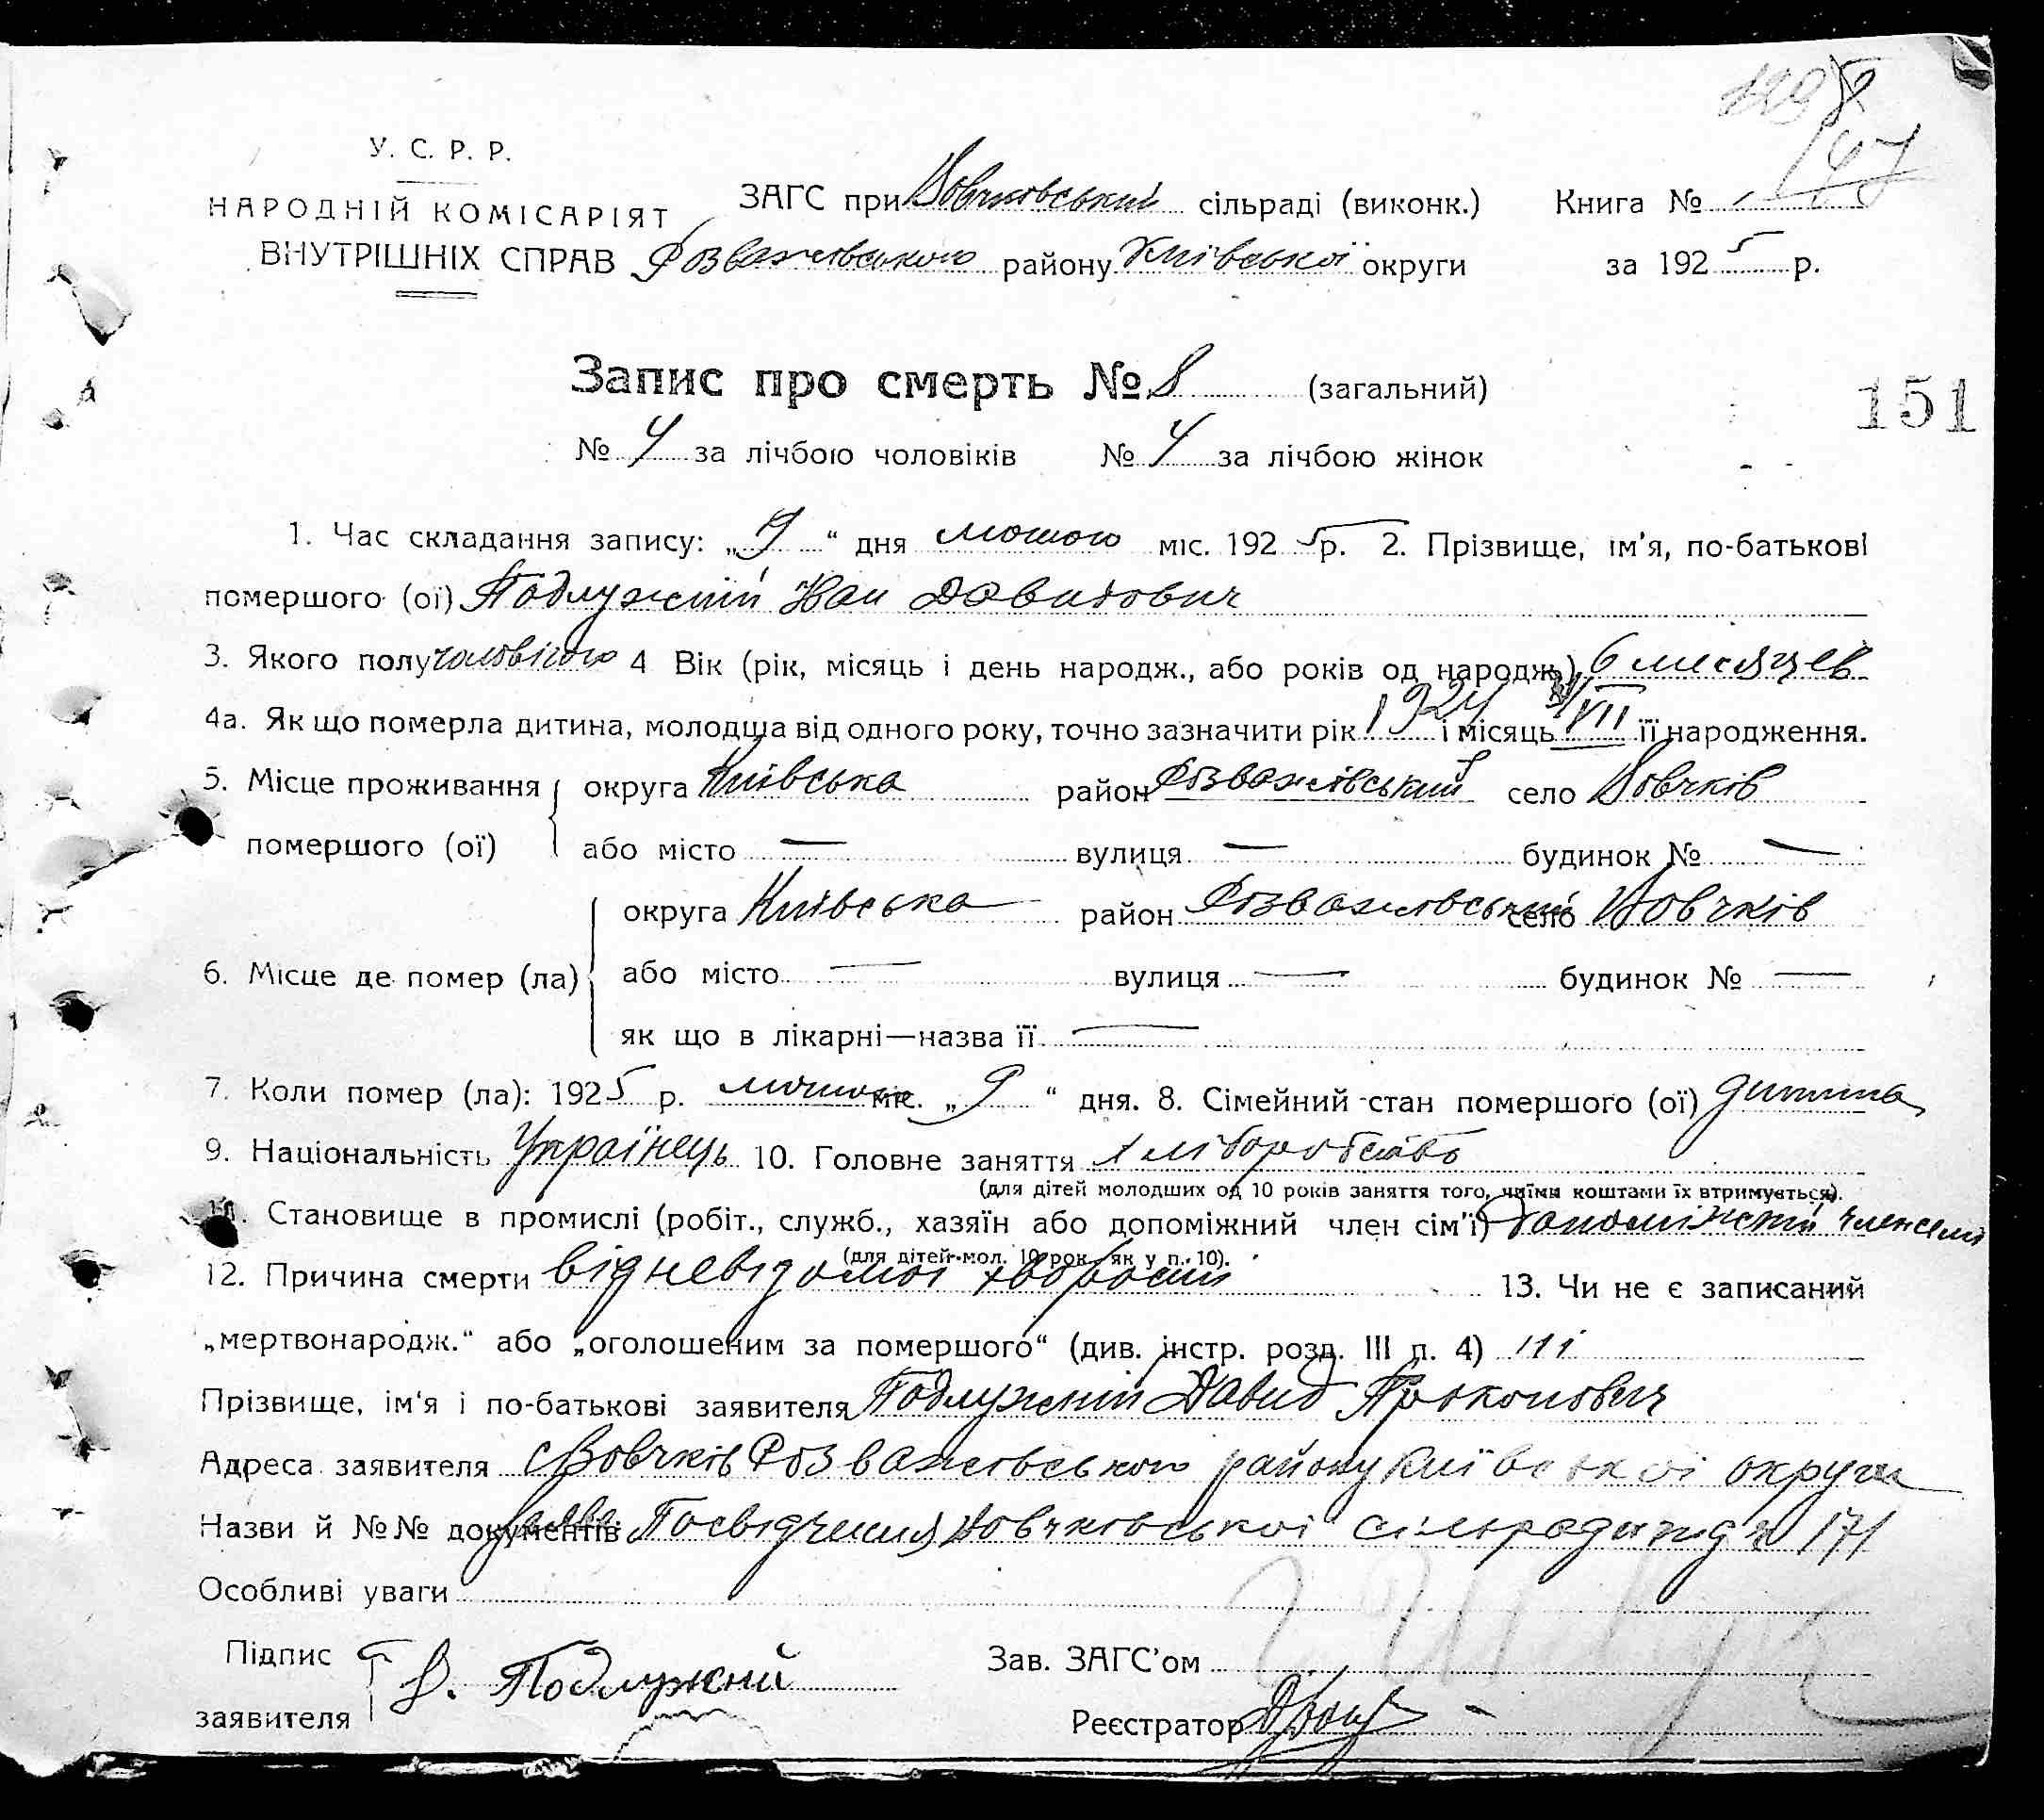 147
У. С. Р. Р.
НАРОДНІЙ КОМІСАРІЯТ
ВНУТРІШНІХ СПРАВ
ЗАГС при Вовчковський сільраді (виконк.) Книга № 1
Розважівського району Київської округи за 1925 р.
Запис про смерть № 8 (загальний)
151
№ 4 за лічбою чоловіків № 4 за лічбою жінок
1. Час складання запису: „9“ дня лютого міс. 1925 р. 2. Прізвище, ім'я, по-батькові
помершого (ої) Подлужній Іван Давидович
3. Якого полу чоловічого 4 Вік (рік, місяць і день народж., або років од народж.) 6 месяцев
4а. Як що померла дитина, молодша від одного року, точно зазначити рік 1924 і місяць VII її народження.
5. Місце проживання округа Київська район Розважівський село Вовчків
помершого (ої) або місто — вулиця — будинок № —
округа Київська район Розважовський село Вовчків
6. Місце де помер (ла) або місто — вулиця — будинок № —
як що в лікарні—назва її —
7. Коли помер (ла): 1925 р. лютого міс. „9“ дня. 8. Сімейний стан помершого (ої) дитина
9. Національність Українець 10. Головне заняття хліборобство
(для дітей молодших од 10 років заняття того, чиїми коштами їх втримується).
11. Становище в промислі (робіт., служб., хазяїн або допоміжний член сім'ї) допоміжний член семі
(для дітей мол. 10 рок. як у п. 10).
12. Причина смерти від невідомої хвороби 13. Чи не є записаний
„мертвонародж.“ або „оголошеним за помершого“ (див. інстр. розд. III п. 4) ні
Прізвище, ім'я і по-батькові заявителя Подлужній Давид Прокопович
Адреса заявителя с Вовчків Розважовського району Київської округи
Назви й №№ документів: Посвідчення Вовчковської сільради під № 171
Особливі уваги
Підпис
заявителя
Д. Подлужний
Зав. ЗАГС'ом
Реєстратор